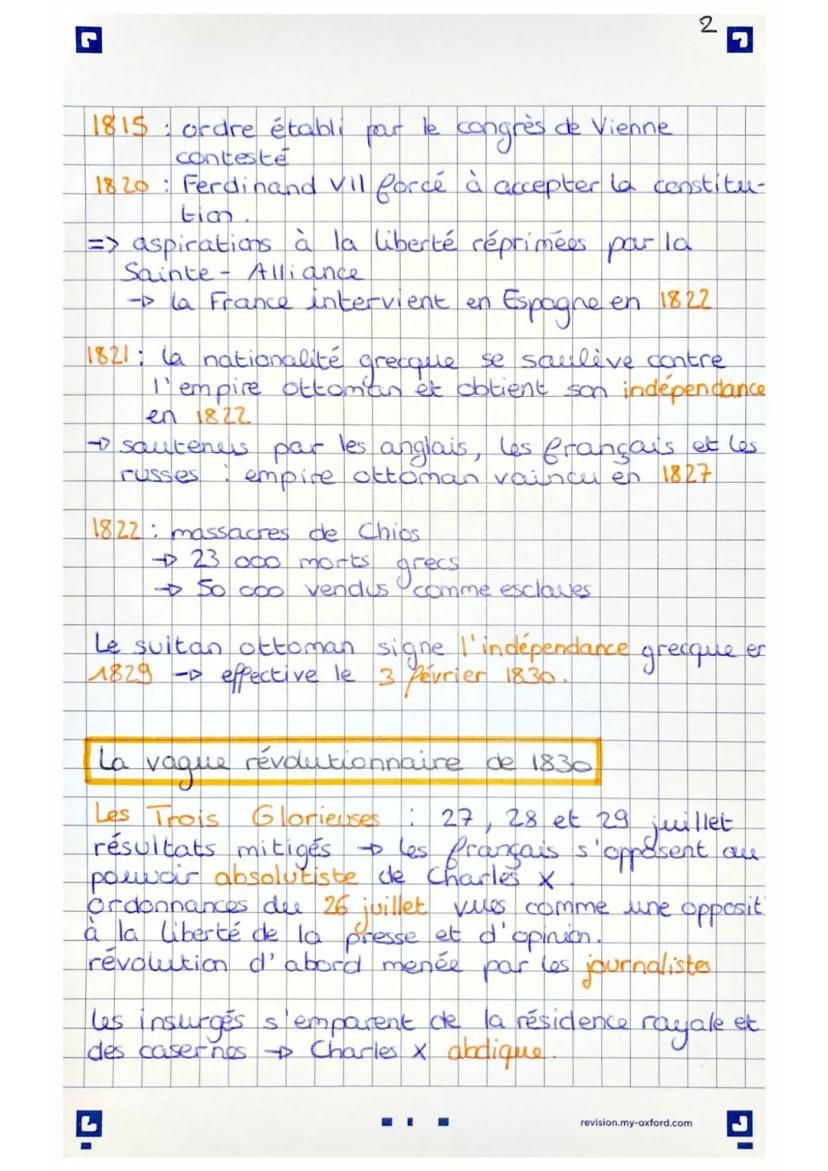 2
1815 : ordre établi par le congrès de Vienne
contesté
1820 : Ferdinand VII forcé à accepter la constitu-
tion.
=> aspirations à la liberté réprimées par la
Sainte - Alliance
→ la France intervient en Espagne en 1822
1821 : la nationalité grecque se soulève contre
l'empire ottoman et obtient son indépendance
en 1822
→ soutenus par les anglais, les français et les
russes : empire ottoman vaincu en 1827
1822 : massacres de Chios
→ 23 000 morts grecs
→ 50 000 vendus comme esclaves
Le sultan ottoman signe l'indépendance grecque en
1829 → effective le 3 février 1830.
La vague révolutionnaire de 1830
Les Trois Glorieuses : 27, 28 et 29 juillet
résultats mitigés → les français s'opposent au
pouvoir absolutiste de Charles X.
ordonnances du 26 juillet vues comme une opposit
à la liberté de la presse et d'opinion.
révolution d'abord menée par les journalistes
les insurgés s'emparent de la résidence royale et
des casernes → Charles X abdique.
revision.my-oxford.com